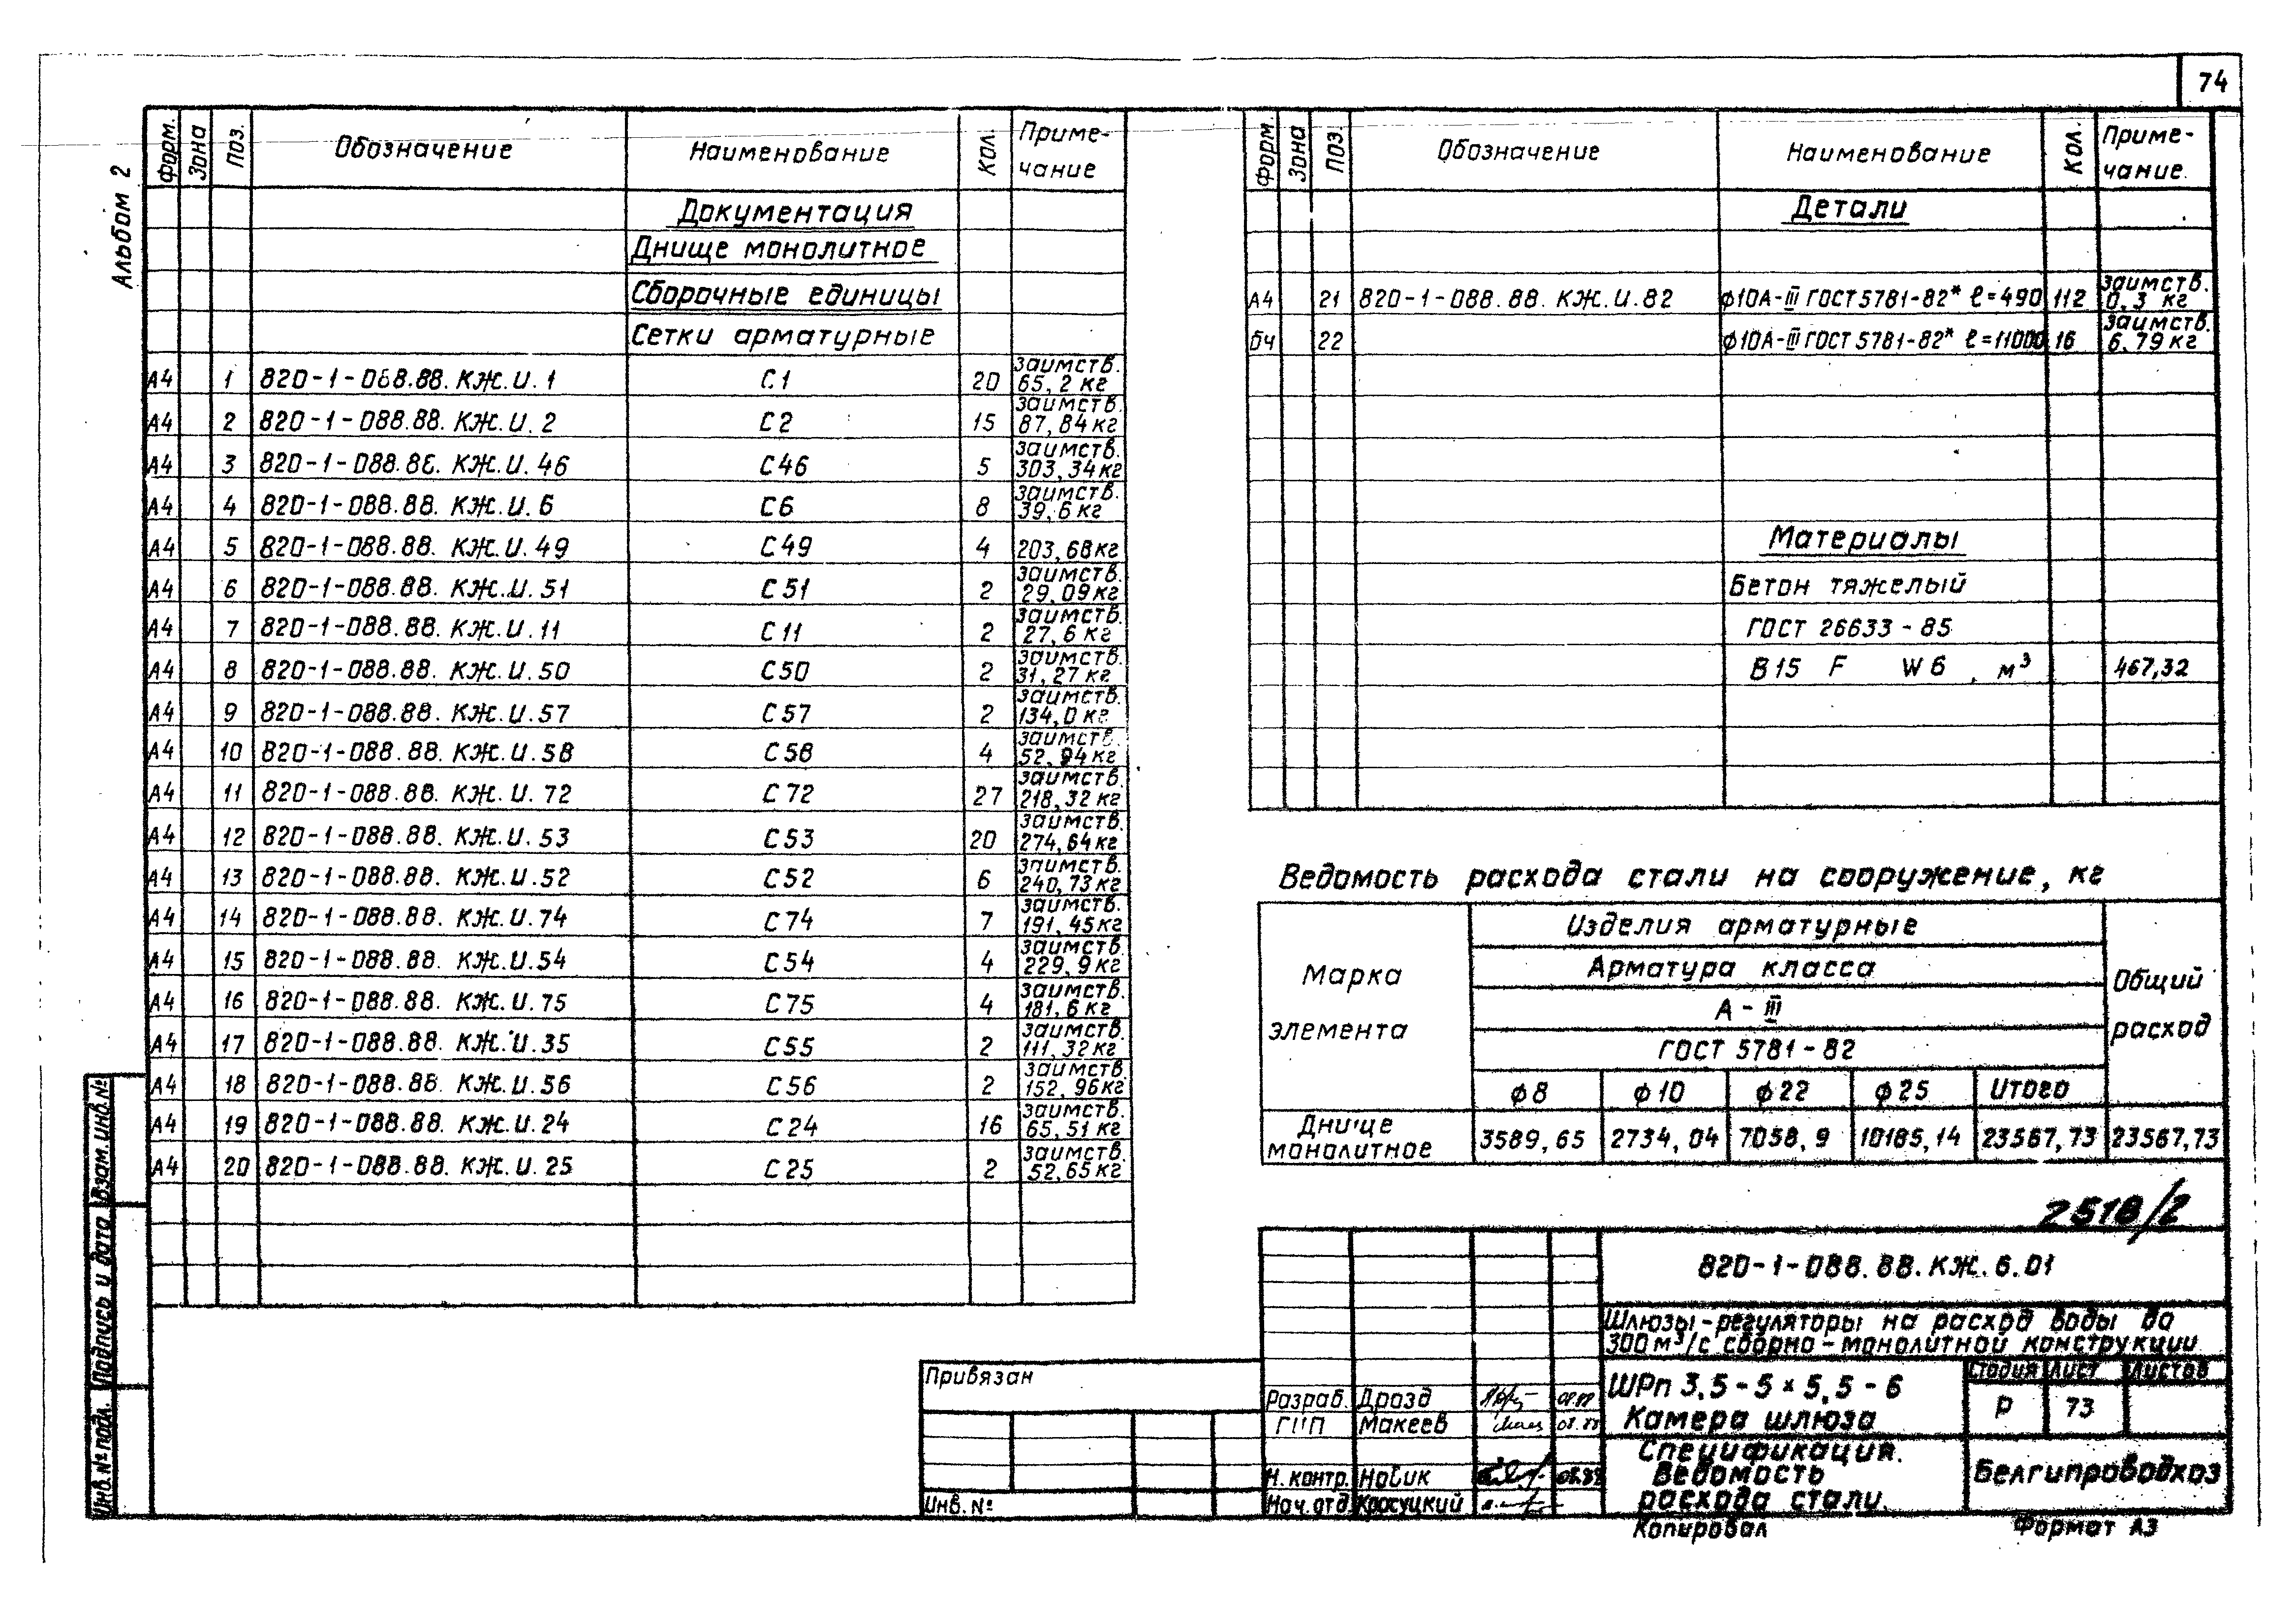 74
Альбом 2
Форм. Зона Поз. Обозначение Наименование Кол. Приме-
чание
Документация
Днище монолитное
Сборочные единицы
Сетки арматурные
А4 1 820-1-088.88. КЖ.И.1 С1 20 заимств. 65,2 кг
А4 2 820-1-088.88. КЖ.И.2 С2 15 заимств. 87,84 кг
А4 3 820-1-088.88. КЖ.И.46 С46 5 заимств. 303,34 кг
А4 4 820-1-088.88. КЖ.И.6 С6 8 заимств. 39,6 кг
А4 5 820-1-088.88. КЖ.И.49 С49 4 203,68 кг
А4 6 820-1-088.88. КЖ.И.51 С51 2 заимств. 29,09 кг
А4 7 820-1-088.88. КЖ.И.11 С11 2 заимств. 27,6 кг
А4 8 820-1-088.88. КЖ.И.50 С50 2 заимств. 31,27 кг
А4 9 820-1-088.88. КЖ.И.57 С57 2 заимств. 134,0 кг
А4 10 820-1-088.88. КЖ.И.58 С58 4 заимств. 52,94 кг
А4 11 820-1-088.88. КЖ.И.72 С72 27 заимств. 218,32 кг
А4 12 820-1-088.88. КЖ.И.53 С53 20 заимств. 274,64 кг
А4 13 820-1-088.88. КЖ.И.52 С52 6 заимств. 240,73 кг
А4 14 820-1-088.88. КЖ.И.74 С74 7 заимств. 191,45 кг
А4 15 820-1-088.88. КЖ.И.54 С54 4 заимств. 229,9 кг
А4 16 820-1-088.88. КЖ.И.75 С75 4 заимств. 181,6 кг
А4 17 820-1-088.88. КЖ.И.35 С55 2 заимств. 111,32 кг
А4 18 820-1-088.88. КЖ.И.56 С56 2 заимств. 152,96 кг
А4 19 820-1-088.88. КЖ.И.24 С24 16 заимств. 65,51 кг
А4 20 820-1-088.88. КЖ.И.25 С25 2 заимств. 52,65 кг
Форм. Зона Поз. Обозначение Наименование Кол. Приме-
чание.
Детали
А4 21 820-1-088.88. КЖ.И.82 ф10А-III ГОСТ 5781-82* ℓ=490 112 заимств. 0,3 кг
бч 22 ф10А-III ГОСТ 5781-82* ℓ=11000 16 заимств. 6,79 кг
Материалы
Бетон тяжелый
ГОСТ 26633-85
В15 F W6, м³ 467,32
Ведомость расхода стали на сооружение, кг
Марка элемента Изделия арматурные Общий расход
Арматура класса
А-III
ГОСТ 5781-82
ф8 ф10 ф22 ф25 Итого
Днище монолитное 3589,65 2734,04 7058,9 10185,14 23567,73 23567,73
2518/2
820-1-088.88.КЖ.6.01
Шлюзы-регуляторы на расход воды до
300 м³/с сборно-монолитной конструкции
ШРп 3,5-5×5,5-6
Камера шлюза
Стадия Лист Листов
Р 73
Спецификация.
Ведомость
расхода стали.
Белгипроводхоз
Разраб. Дрозд 08.88
ГИП Макеев 08.88
Н. контр. Новик 08.88
Нач. отд. Кросуцкий
Привязан
Инв. №
Взам. инв. №
Подпись и дата
Инв. № подл.
Копировал Формат А3